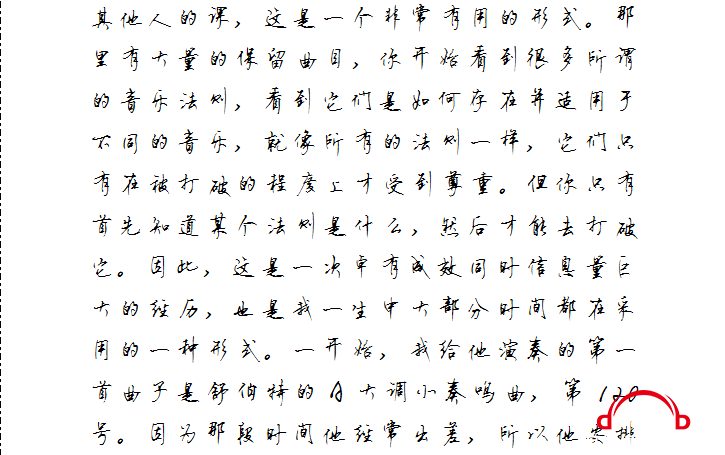 其他人的课，这是一个非常有用的形式。那
里有大量的保留曲目，你开始看到很多所谓
的音乐法则，看到它们是如何存在并适用于
不同的音乐，就像所有的法则一样，它们只
有在被打破的程度上才受到尊重。但你只有
首先知道某个法则是什么，然后才能去打破
它。因此，这是一次卓有成效同时信息量巨
大的经历，也是我一生中大部分时间都在采
用的一种形式。一开始，我给他演奏的第一
首曲子是舒伯特的A大调小奏鸣曲，第120
号。因为那段时间他经常出差，所以他要排